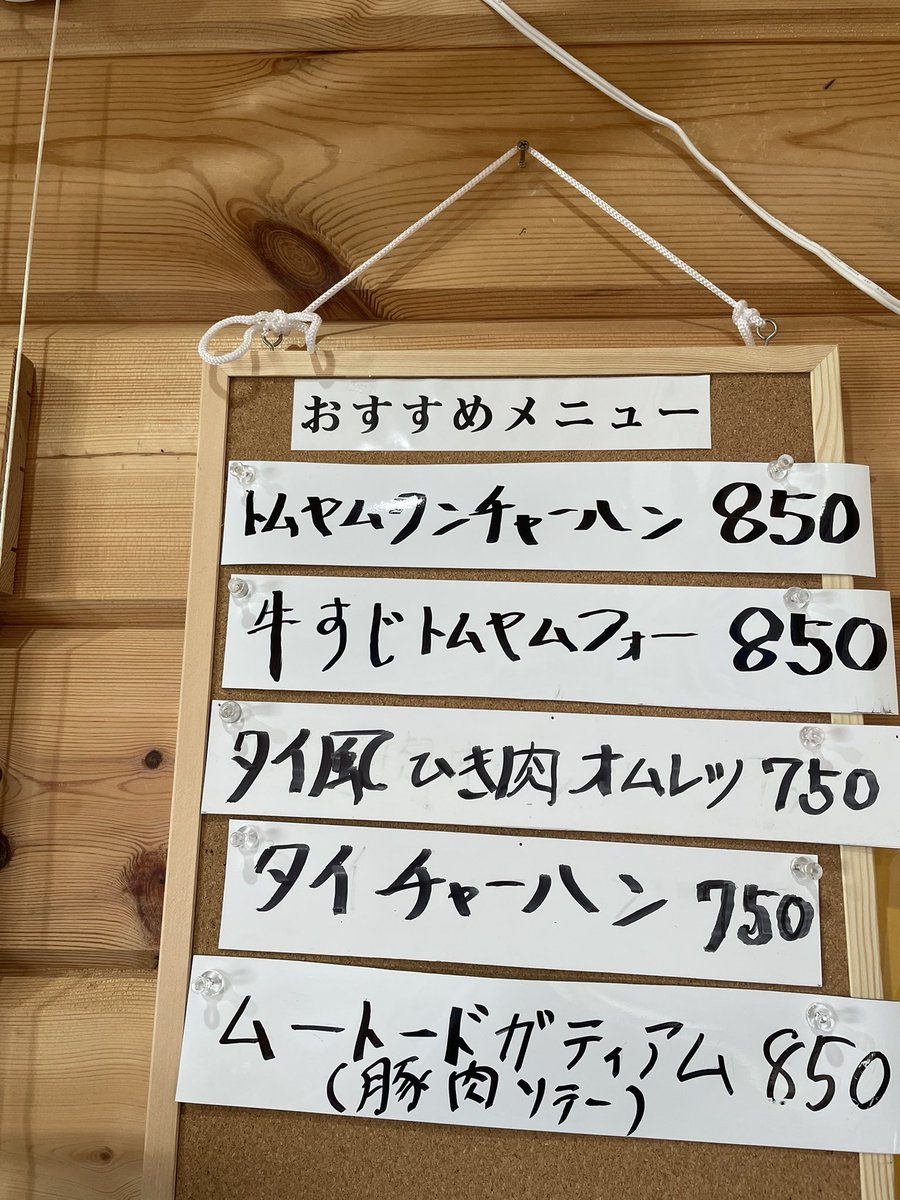 おすすめメニュー
トムヤムクンチャーハン 850
牛すじトムヤムフォー 850
タイ風ひき肉オムレツ 750
タイチャーハン 750
ムートードガティアム 850
(豚肉ソテー)